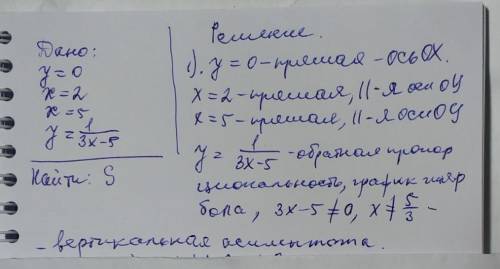 Дано:
y=0
x=2
x=5
y=1/(3x-5)
Найти: S
Решение.
1). y=0-прямая-осьOX.
x=2-прямая, ||-я оси OY
x=5-прямая, ||-я оси OY
y=1/(3x-5) -обратная пропор
циональность, график гипер
бола, 3x-5≠0, x≠5/3 -
-вертикальная асимптота.